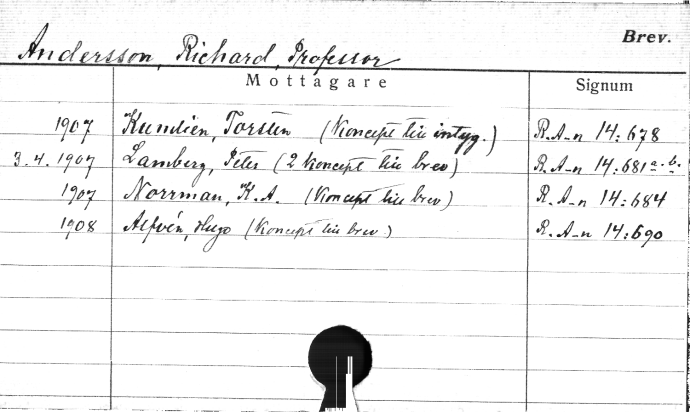 Brev.
Andersson, Richard, Professor
Mottagare Signum
1907 Kumlien, Torsten (Koncept till intyg.) R.A-n 14:678
3.4.1907 Lamberg, Peter (2 koncept till brev) R.A-n 14:681a.b.
1907 Norrman, K.A. (Koncept till brev) R.A-n 14:684
1908 Alfvén, Hugo (Koncept till brev) R.A-n 14:690